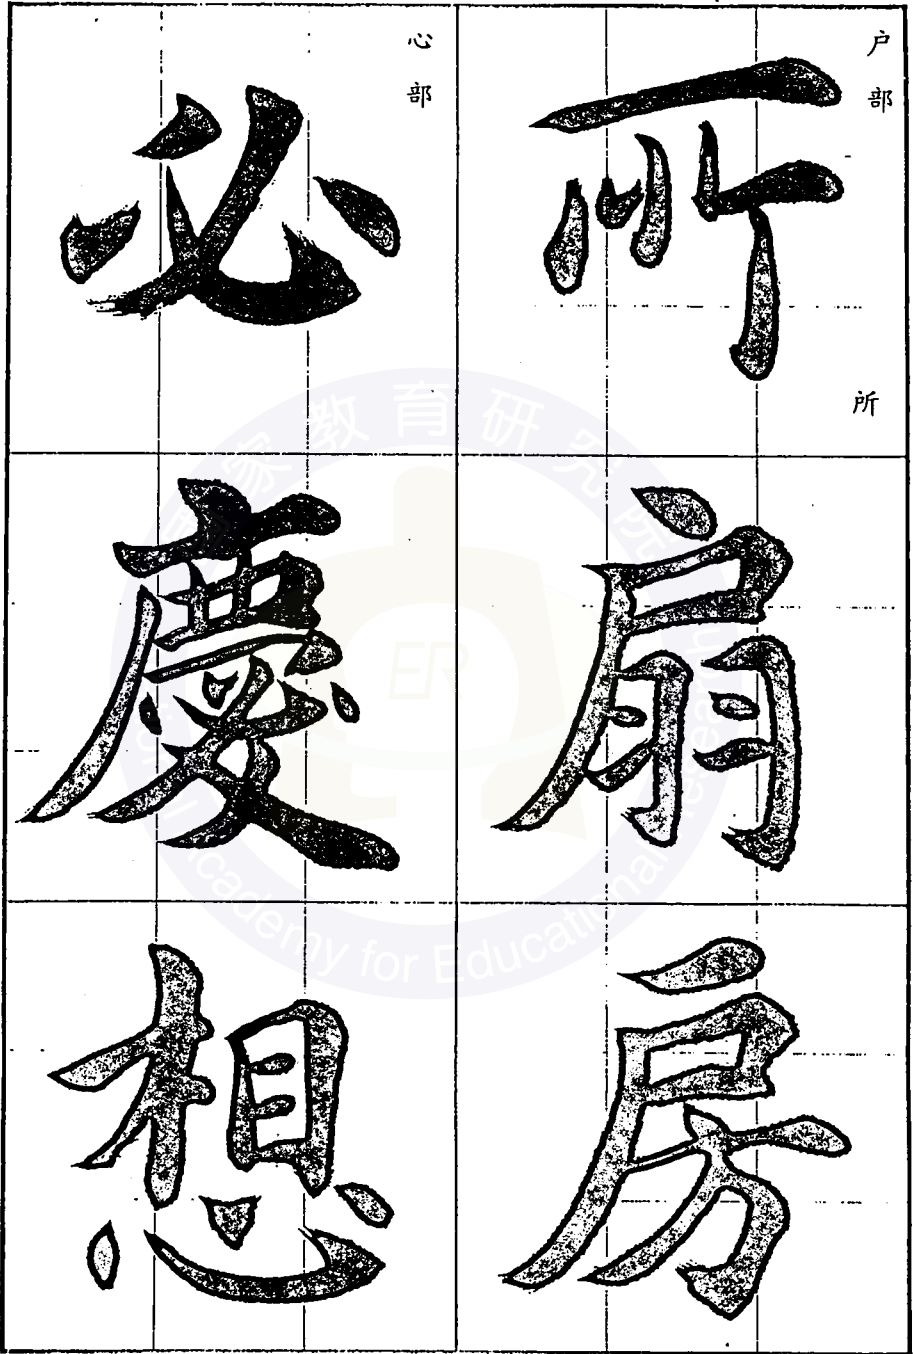 户部
所
所
扇
房
心部
必
慶
想
國家教育研究院
National Academy for Educational Research
ER